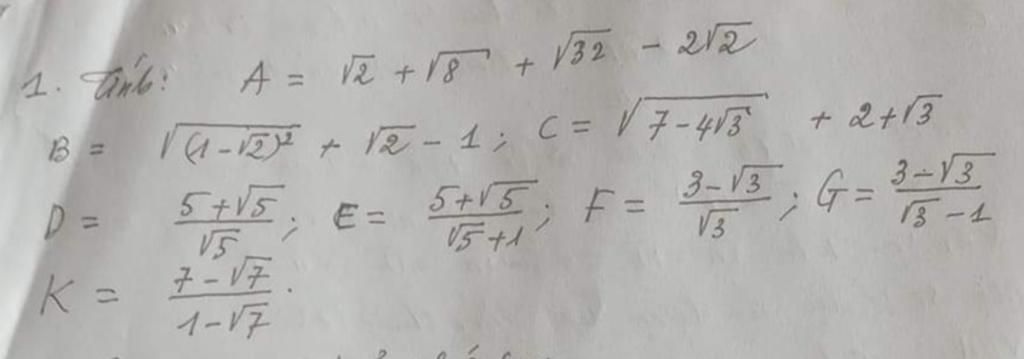 1. Tính: A = √2 + √8 + √32 - 2√2
B = √(1-√2)² + √2 - 1; C = √7-4√3 + 2+√3
D = 5+√5/√5; E = 5+√5/√5+1; F = 3-√3/√3; G = 3-√3/√3-1
K = 7-√7/1-√7.